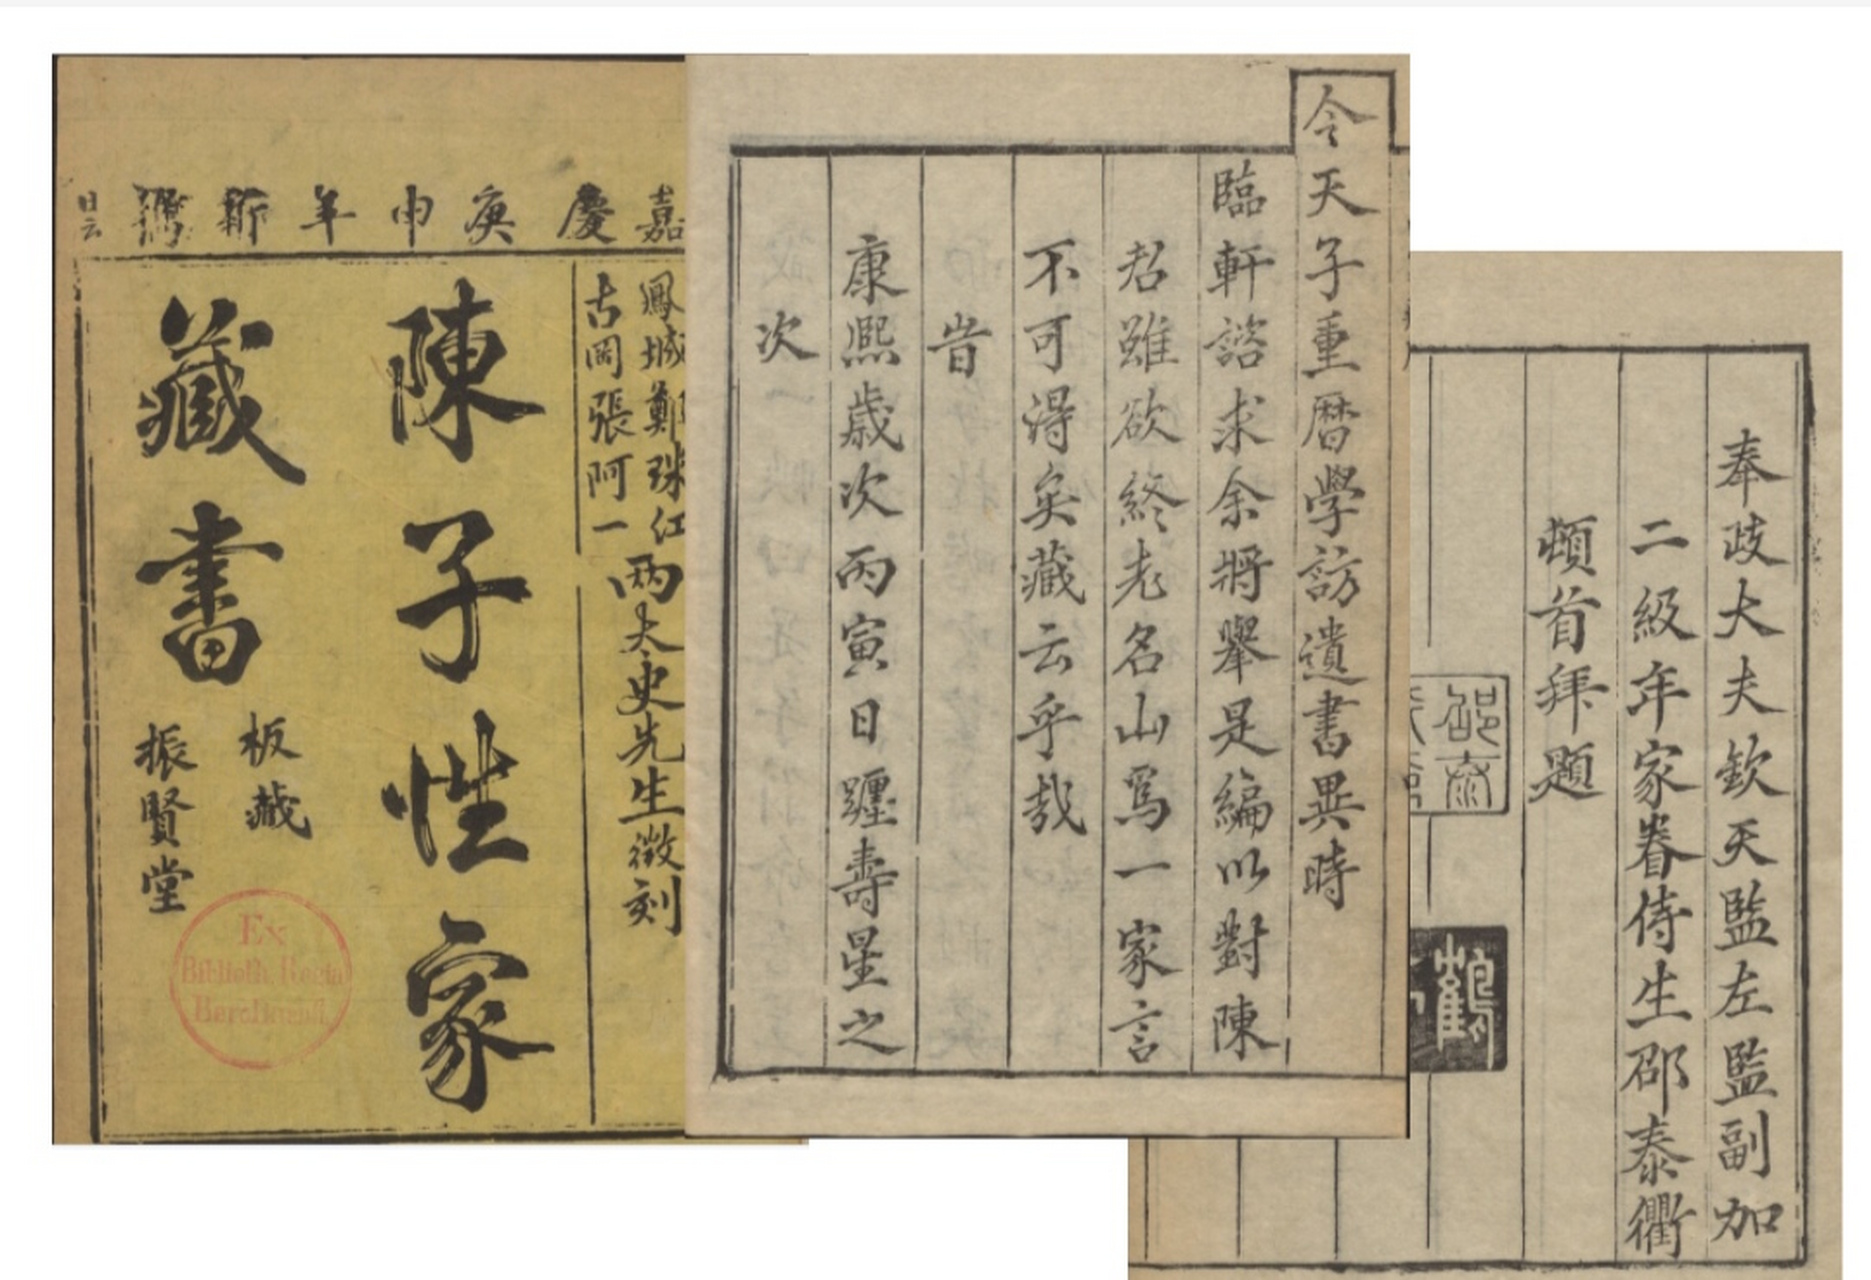 嘉慶庚申年新鐫
鳳城鄭珠江
古岡張阿一
兩太史先生徵刻
陳子性家
藏書
板藏
振賢堂
Ex
Biblioth. Regia
Berolinensi.
今天子重曆學訪遺書異時
臨軒諮求余將舉是編以對陳
君雖欲終老名山爲一家言
不可得矣藏云乎哉
旹
康熙歲次丙寅日躔壽星之
次
奉政大夫欽天監左監副加
二級年家眷侍生邵泰衢
頓首拜題
邵泰